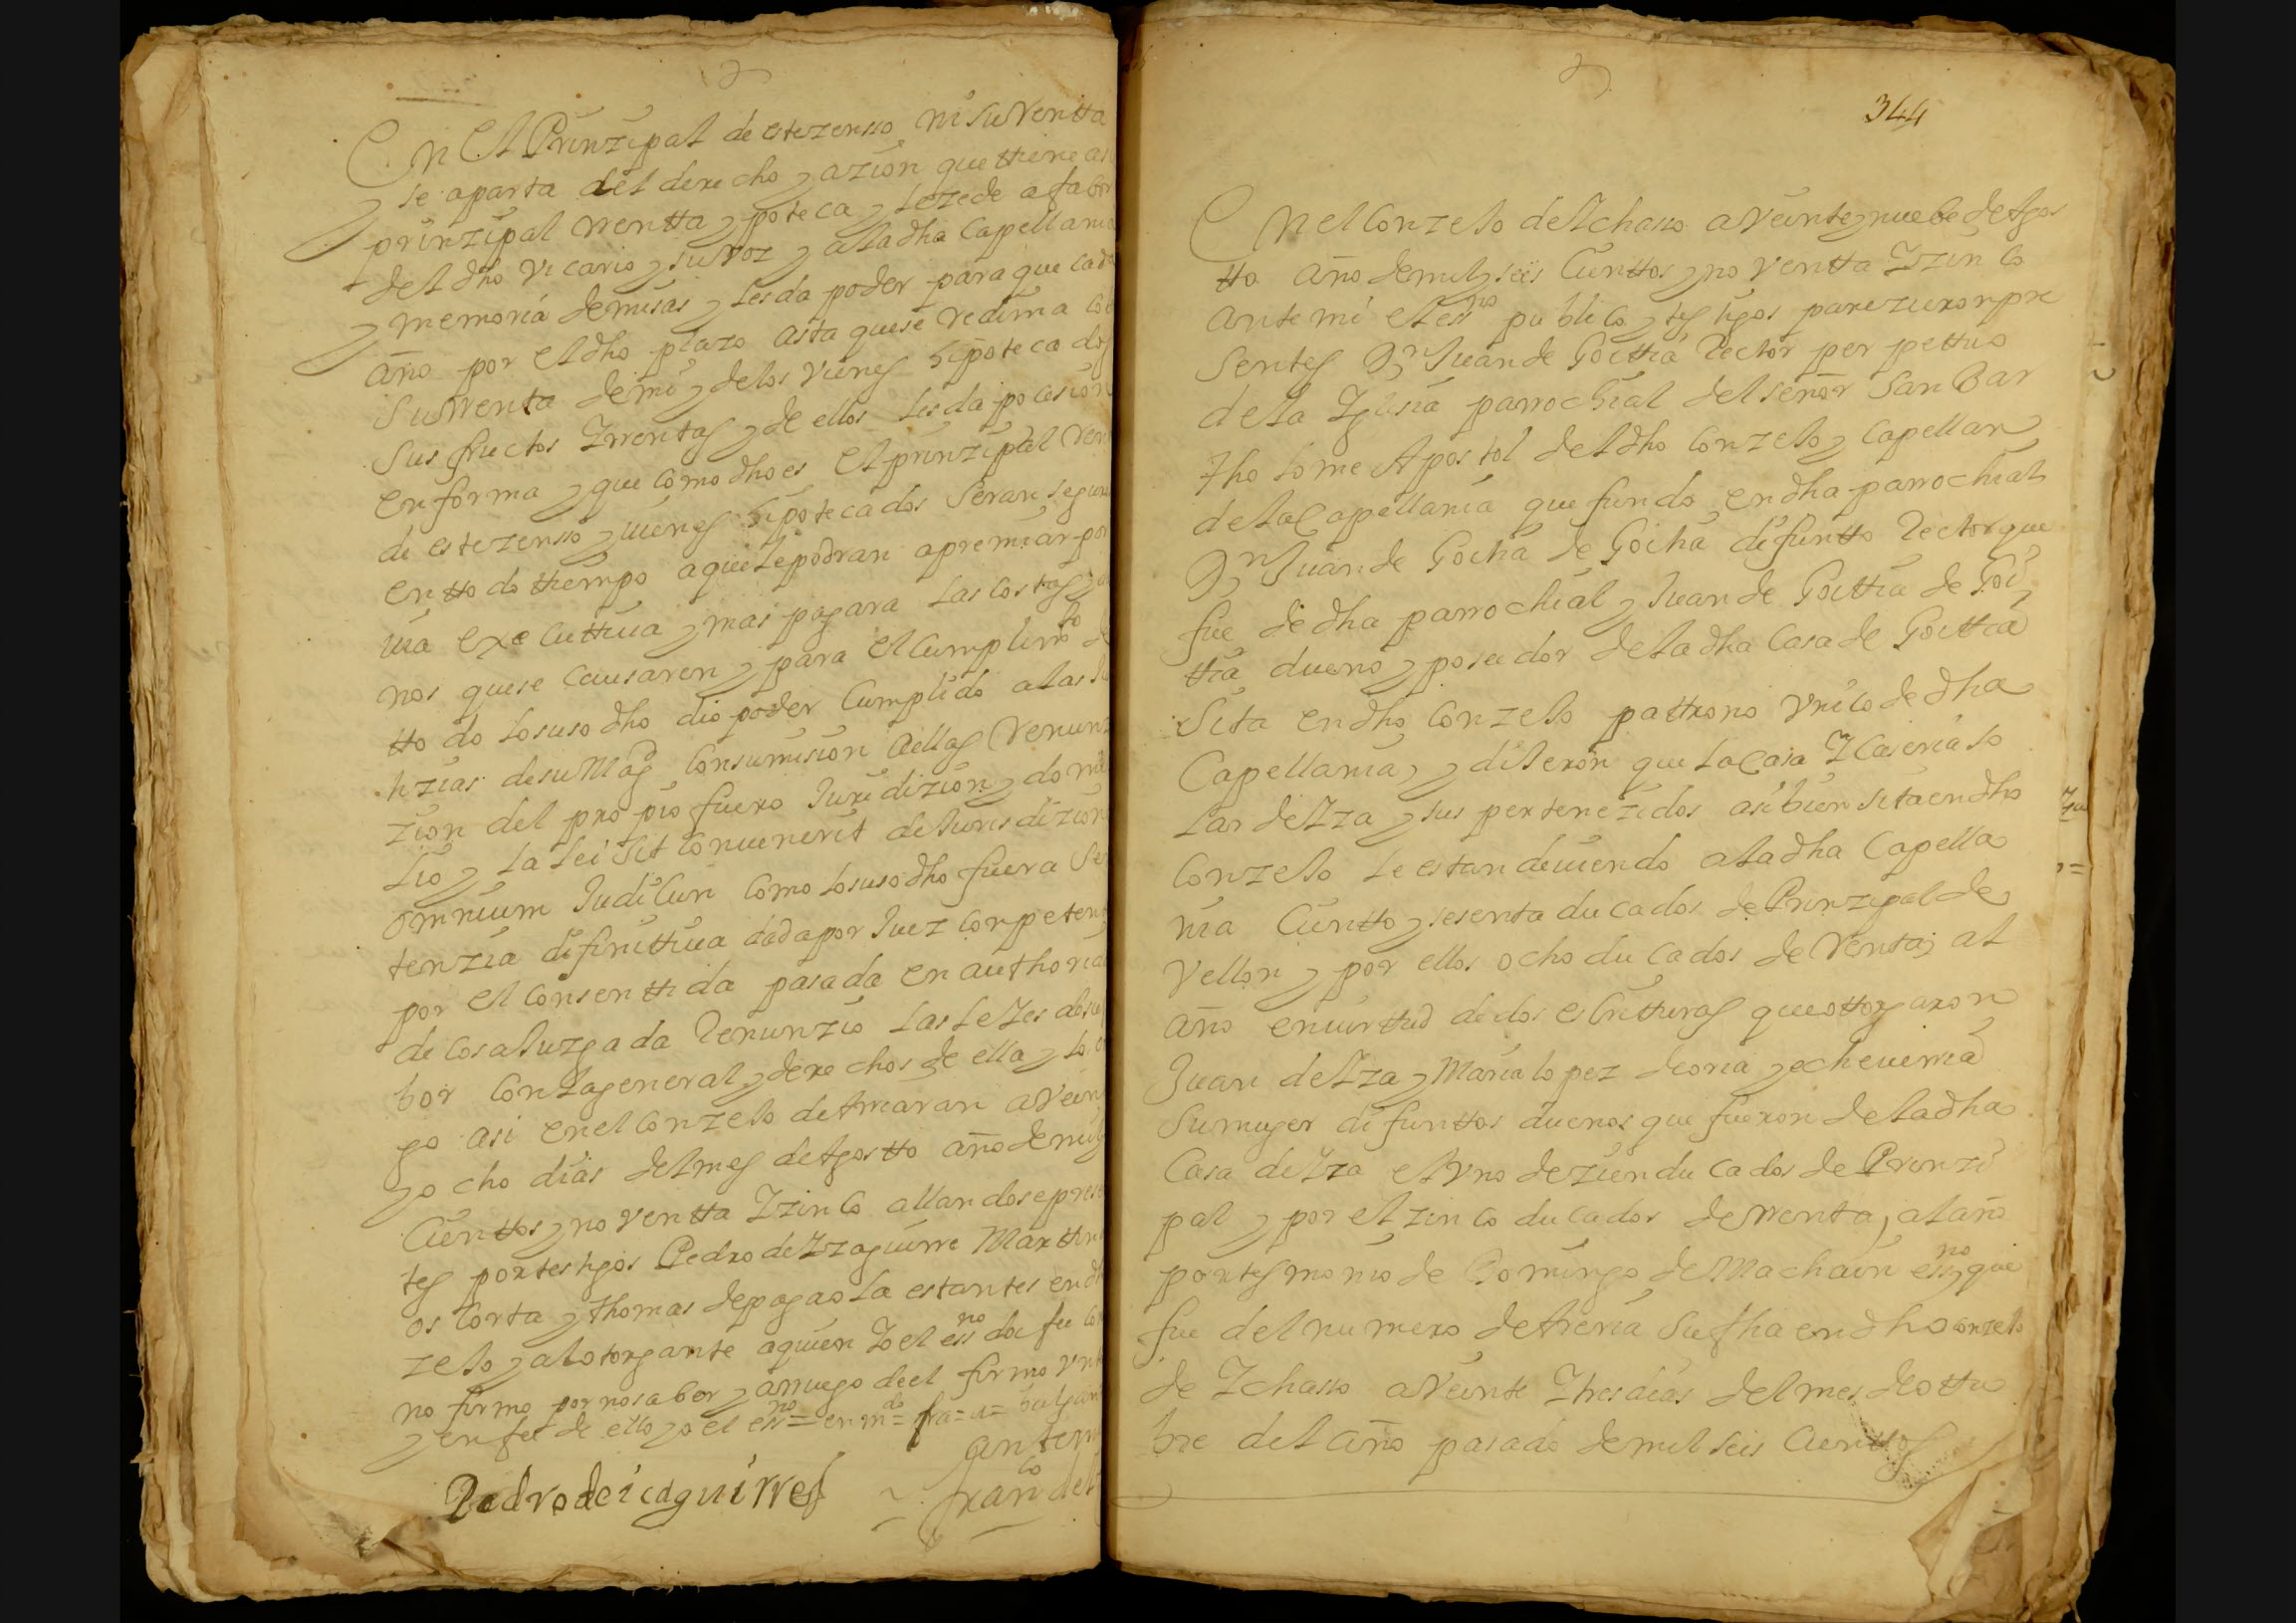 En El Prinzipal de estezensso ni su Rentta
y se aparta del derecho y azion que ttiene al
prinzipal rrentta ypoteca y lezede a fabor
del dho vicario y su voz y a la dha Capellania
y memoria de misas y les da poder para que cada
año por el dho plazo asta que se redima
su rrenta de mi y de los vienes hipotecados
sus fructos Yrrentas y de ellos les da posesion
en forma y que como dho es El prinzipal
de estezensso y uienes hipotecados seran seguros
en ttodo ttiempo a que le podran apremiar por
uia executtiua y mas pagara las costas y
nos que se causaren y para el cumplimto de
ttodo lo suso dho dio poder cumplido a las
tizias de su Magd con sumision a ellas
zion del propio fuero Juridizion y domi
lio y la lei sit conuenerit de Jurisdizion
omnium Judicun como lo suso dho fuera
tenzia difinittiua dada por Juez conpetente
por el consenttida pasada en authorida
de cosa Juzgada Renunzio las leies de su
bor con la general y derechos de ella y lo
go asi en el conzejo de Amaran
y ocho dias del mes de Agostto año de mil
Cienttos y noventta Yzinco allandose
tes por testigos Pedro de Yzaguirre Marttin
os corta y thomas de pagaola estantes en dho
zejo y al otorgante a quien Yo el essno doi fee
no firmo por no saber y a rruego de el firmo
y en fee de ello yo el essno = enmdo =
Pedro de icaguirre
Ante mi
franco de
344
En el Conzejo de Ychasso a veinte y nuebe de Agos
tto año de mil y seis Cienttos y noventta Yzinco
ante mi el essno publico y tesstigos parezieron pre
sentes Dn Juan de Goittia Rector perpettuo
de la Yglesia parrochial del señor San Bar
tholome Apostol del dho conzejo y capellan
de la Capellania que fundo en dha parrochial
Dn Juan de Goitia de Goitia difuntto Rector que
fue de dha parrochial y Juan de Goittia de Goi
ttia dueño y poseedor de la dha casa de Goittia
sita en dho conzejo pattrono vnico de dha
Capellania y dixeron que la Casa Ycaseria so
lar de Yza y sus pertenezidos asi bien sita en dho
conzejo le estan deuiendo a la dha Capella
nia Cientto y sesenta ducados de Prinzipal de
vellon y por ellos ocho ducados de Renta al
año en uirttud de dos escritturas que ottorgaron
Juan de Yza y Maria lopez de oria y echeuerria
su muger difunttos dueños que fueron de la dha
Casa de Yza el vno de zien ducados de Prinzi
pal y por el zinco ducados de rrenta al año
por tesmonio de Domingo de Machain essno que
fue del numero de Areria su fha en dho conzejo
de Ychasso a veinte Ytres dias del mes de ottu
bre del año pasado de mil seis Cienttos